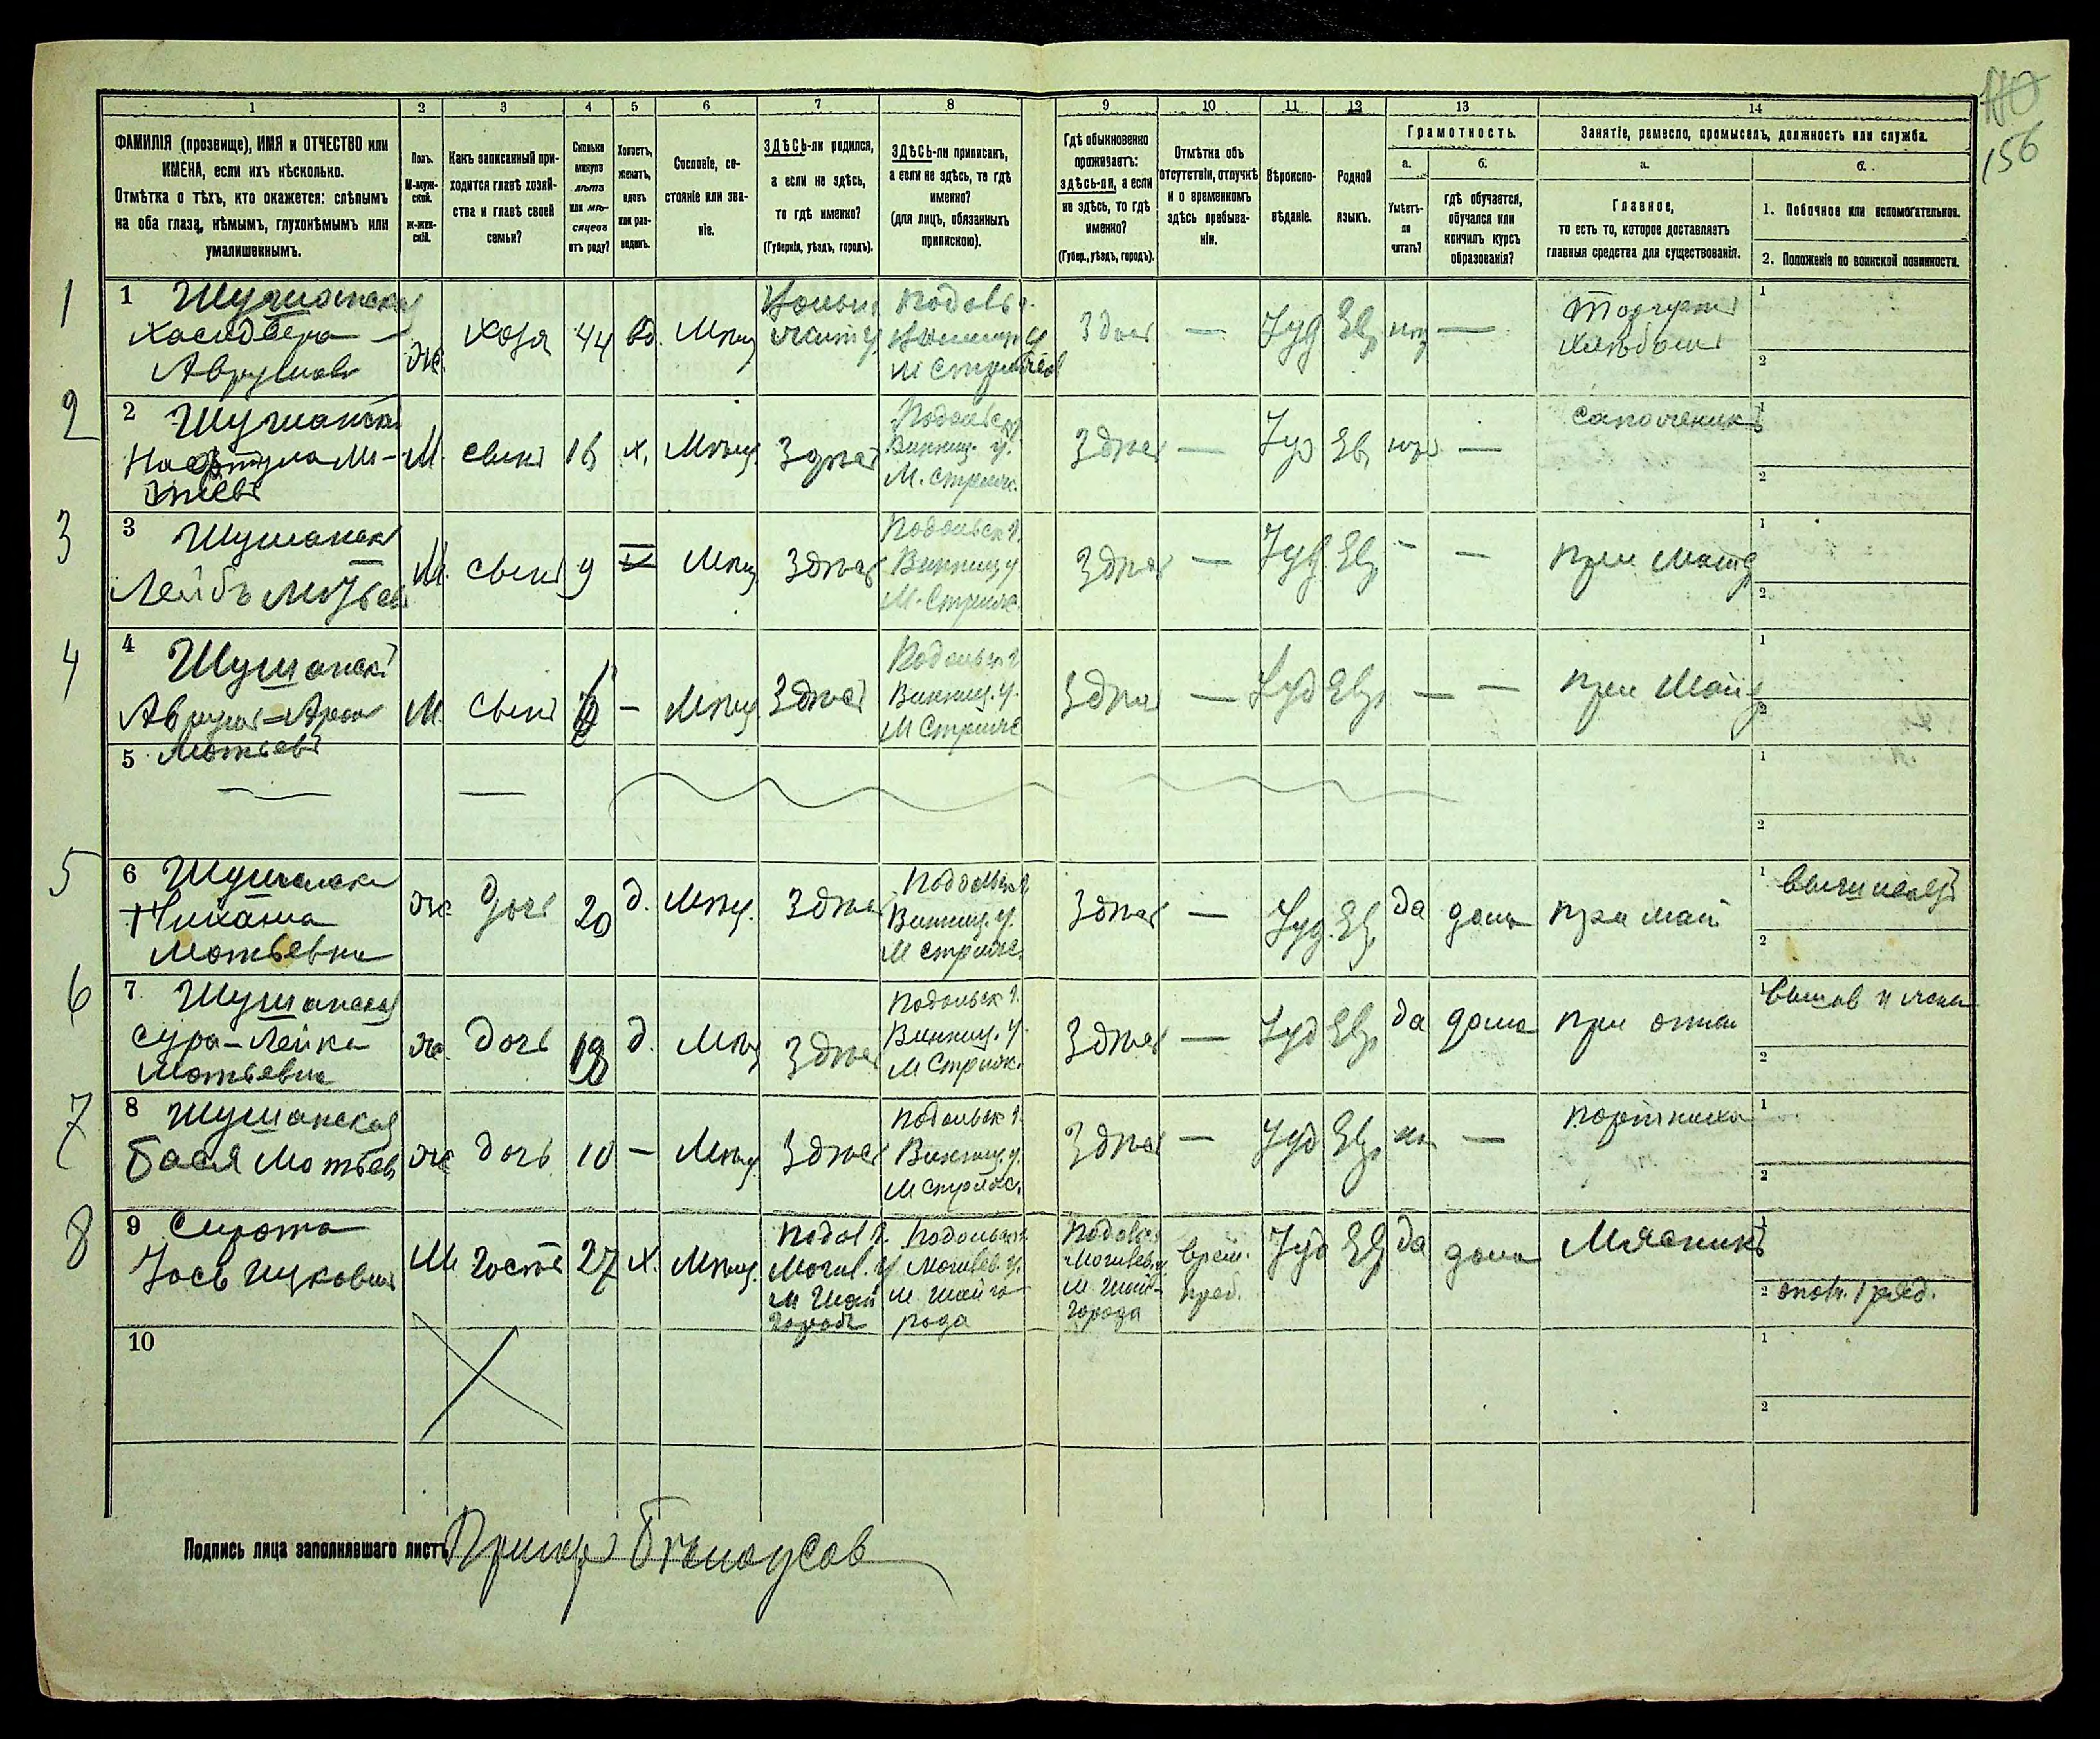 156
1 2 3 4 5 6 7 8 9 10 11 12 13 14
ФАМИЛІЯ (прозвище), ИМЯ и ОТЧЕСТВО или
ИМЕНА, если ихъ нѣсколько.
Отмѣтка о тѣхъ, кто окажется: слѣпымъ
на оба глаза, нѣмымъ, глухонѣмымъ или
умалишеннымъ.
Полъ.
М-муж-
ской.
ж-жен-
скій.
Какъ записанный при-
ходится главѣ хозяй-
ства и главѣ своей
семьи?
Сколько
минуло
лѣтъ
или мѣ-
сяцевъ
отъ роду?
Холостъ,
женатъ,
вдовъ
или раз-
веденъ.
Сословіе, со-
стояніе или зва-
ніе.
ЗДѢСЬ-ли родился,
а если не здѣсь,
то гдѣ именно?
(Губернія, уѣздъ, городъ).
ЗДѢСЬ-ли приписанъ,
а если не здѣсь, то гдѣ
именно?
(для лицъ, обязанныхъ
припискою).
Гдѣ обыкновенно
проживаетъ:
здѣсь-ли, а если
не здѣсь, то гдѣ
именно?
(Губер., уѣздъ, городъ).
Отмѣтка объ
отсутствіи, отлучкѣ
и о временномъ
здѣсь пребыва-
ніи.
Вѣроиспо-
вѣданіе.
Родной
языкъ.
Грамотность.
а.
Умѣетъ-
ли
читать?
б.
гдѣ обучается,
обучался или
кончилъ курсъ
образованія?
Занятіе, ремесло, промыселъ, должность или служба.
а.
Главное,
то есть то, которое доставляетъ
главныя средства для существованія.
б.
1. Побочное или вспомогательное.
2. Положеніе по воинской повинности.
1
1 Шушанская
Аврумов
ж. хозя 44 вд. Мѣщ
Подольс г.
Здѣсь — Іуд Ев нѣт —
Торгует
хлѣбом
1
2
2
2 Шушански
М. сын 16 х. Мѣщ. Здѣсь
Подольск г.
Винниц. у.
М. Стриж.
Здѣсь — Іуд Ев нѣт —
сапожникъ
1
2
3
3 Шушанск
Лейбъ Мотьев
М. сын 9 Мѣщ Здѣсь
Подольск г.
Винниц у
М. Стриж.
Здѣсь — Іуд. Ев. - — при мат
1
2
4
4 Шушанскі
Аврум-Арон
Мотьев
М. сын — Мѣщ. Здѣсь
Подольск г
Винниц. у.
М Стриж
Здѣсь — Іуд Ев. — — при мат
1
2
5
— —
1
2
5
6 Шушанска
Мотьевна
ж. дочь 20 д. Мѣщ. Здѣсь
Подольск г
Винниц. у.
М Стриж.
Здѣсь — Іуд. Ев. да дома при мат
1
2
6
7. Шушанская
Сура-Лейка
Мотьевна
ж. дочь 18 д. Мѣщ Здѣсь
Подольск г.
Винниц. у.
М Стриж.
Здѣсь — Іуд Ев. да дома при
1
2
7
8 Шушанская
Бася Мотьев
ж дочь 10 — Мѣщ. Здѣсь
Подольск г.
Винниц. у.
М Стриж.
Здѣсь — Іуд Ев. —
портниха
1
2
8
9 Сирота
Іось Ицкович
М гость 27 х. Мѣщ.
Подол г.
Могил. у
М Шай
города
Подольск г.
Могилев. у.
М. Шайго
рода
Подольск
Могилев. у.
М. Шай-
города
врем.
преб.
Іуд Ев да дома Мясникъ
1
2 ополч. 1 разр.
10
1
2
Подпись лица заполнявшаго листъ Бѣлоусов